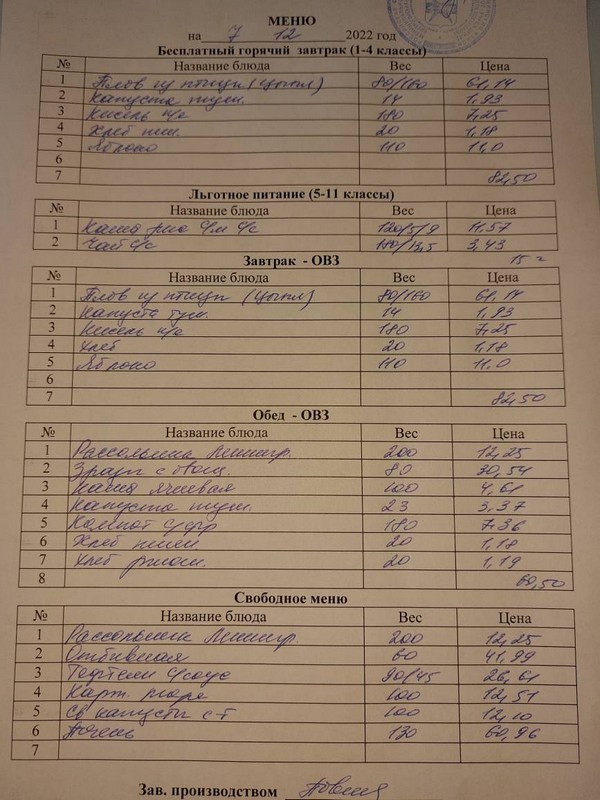 МЕНЮ
на 7 12 2022 год
Бесплатный горячий завтрак (1-4 классы)
№ Название блюда Вес Цена
1 Плов из птицы (цыпл) 80/160 61,14
2 Капуста туш. 14 1,93
3 Кисель п/с 180 7,25
4 Хлеб пш. 20 1,18
5 Яблоко 110 11,0
6
7 82,50
Льготное питание (5-11 классы)
№ Название блюда Вес Цена
1 Каша рис с/м с/с 120/5/9 11,57
2 Чай с/с 180/13,5 3,43
Завтрак - ОВЗ 15 =
№ Название блюда Вес Цена
1 Плов из птицы (цыпл) 80/160 61,14
2 Капуста туш. 14 1,93
3 Кисель п/с 180 7,25
4 Хлеб 20 1,18
5 Яблоко 110 11,0
6
7 82,50
Обед - ОВЗ
№ Название блюда Вес Цена
1 Рассольник Ленингр. 200 12,25
2 Зразы с овощ. 80 30,54
3 Каша ячневая 100 4,61
4 Капуста туш. 23 3,37
5 Компот 180 7,36
6 Хлеб пшен 20 1,18
7 Хлеб ржан. 20 1,19
8 60,50
Свободное меню
№ Название блюда Вес Цена
1 Рассольник Ленингр. 200 12,25
2 Отбивная 60 41,99
3 Тефтели с/соус 90/45 26,61
4 Карт. пюре 100 12,51
5 Св капусты с-т 100 12,10
6 Печень 130 60,96
7
Зав. производством